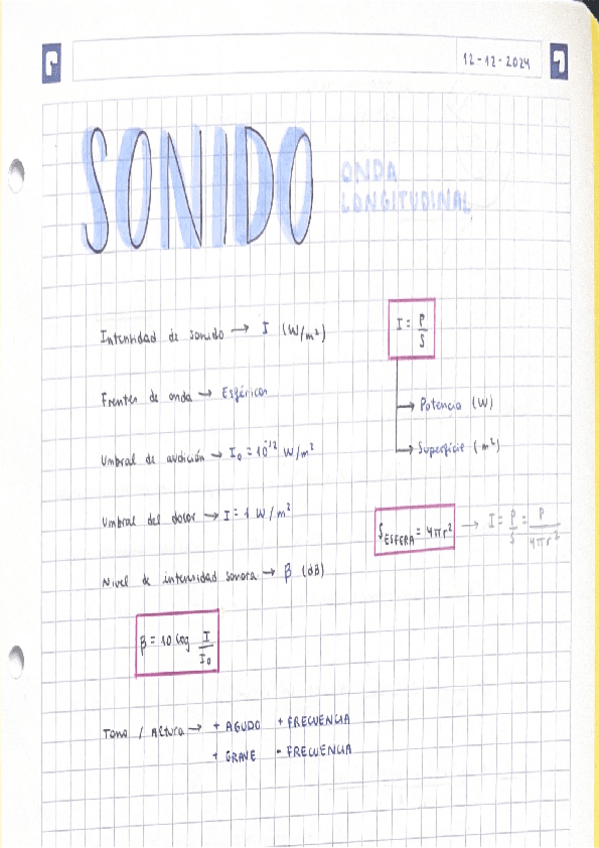 12-12-2024
SONIDO
ONDA
LONGITUDINAL
Intensidad de sonido → I (W/m²)
I = P/S
Frentes de onda → Esféricos
→ Potencia (W)
Umbral de audición → I₀ = 10⁻¹² W/m²
→ Superficie (m²)
Umbral del dolor → I = 1 W/m²
S ESFERA = 4πr² → I = P/S = P/4πr²
Nivel de intensidad sonora → β (dB)
β = 10 log I/I₀
Tono / Altura → + AGUDO + FRECUENCIA
+ GRAVE - FRECUENCIA